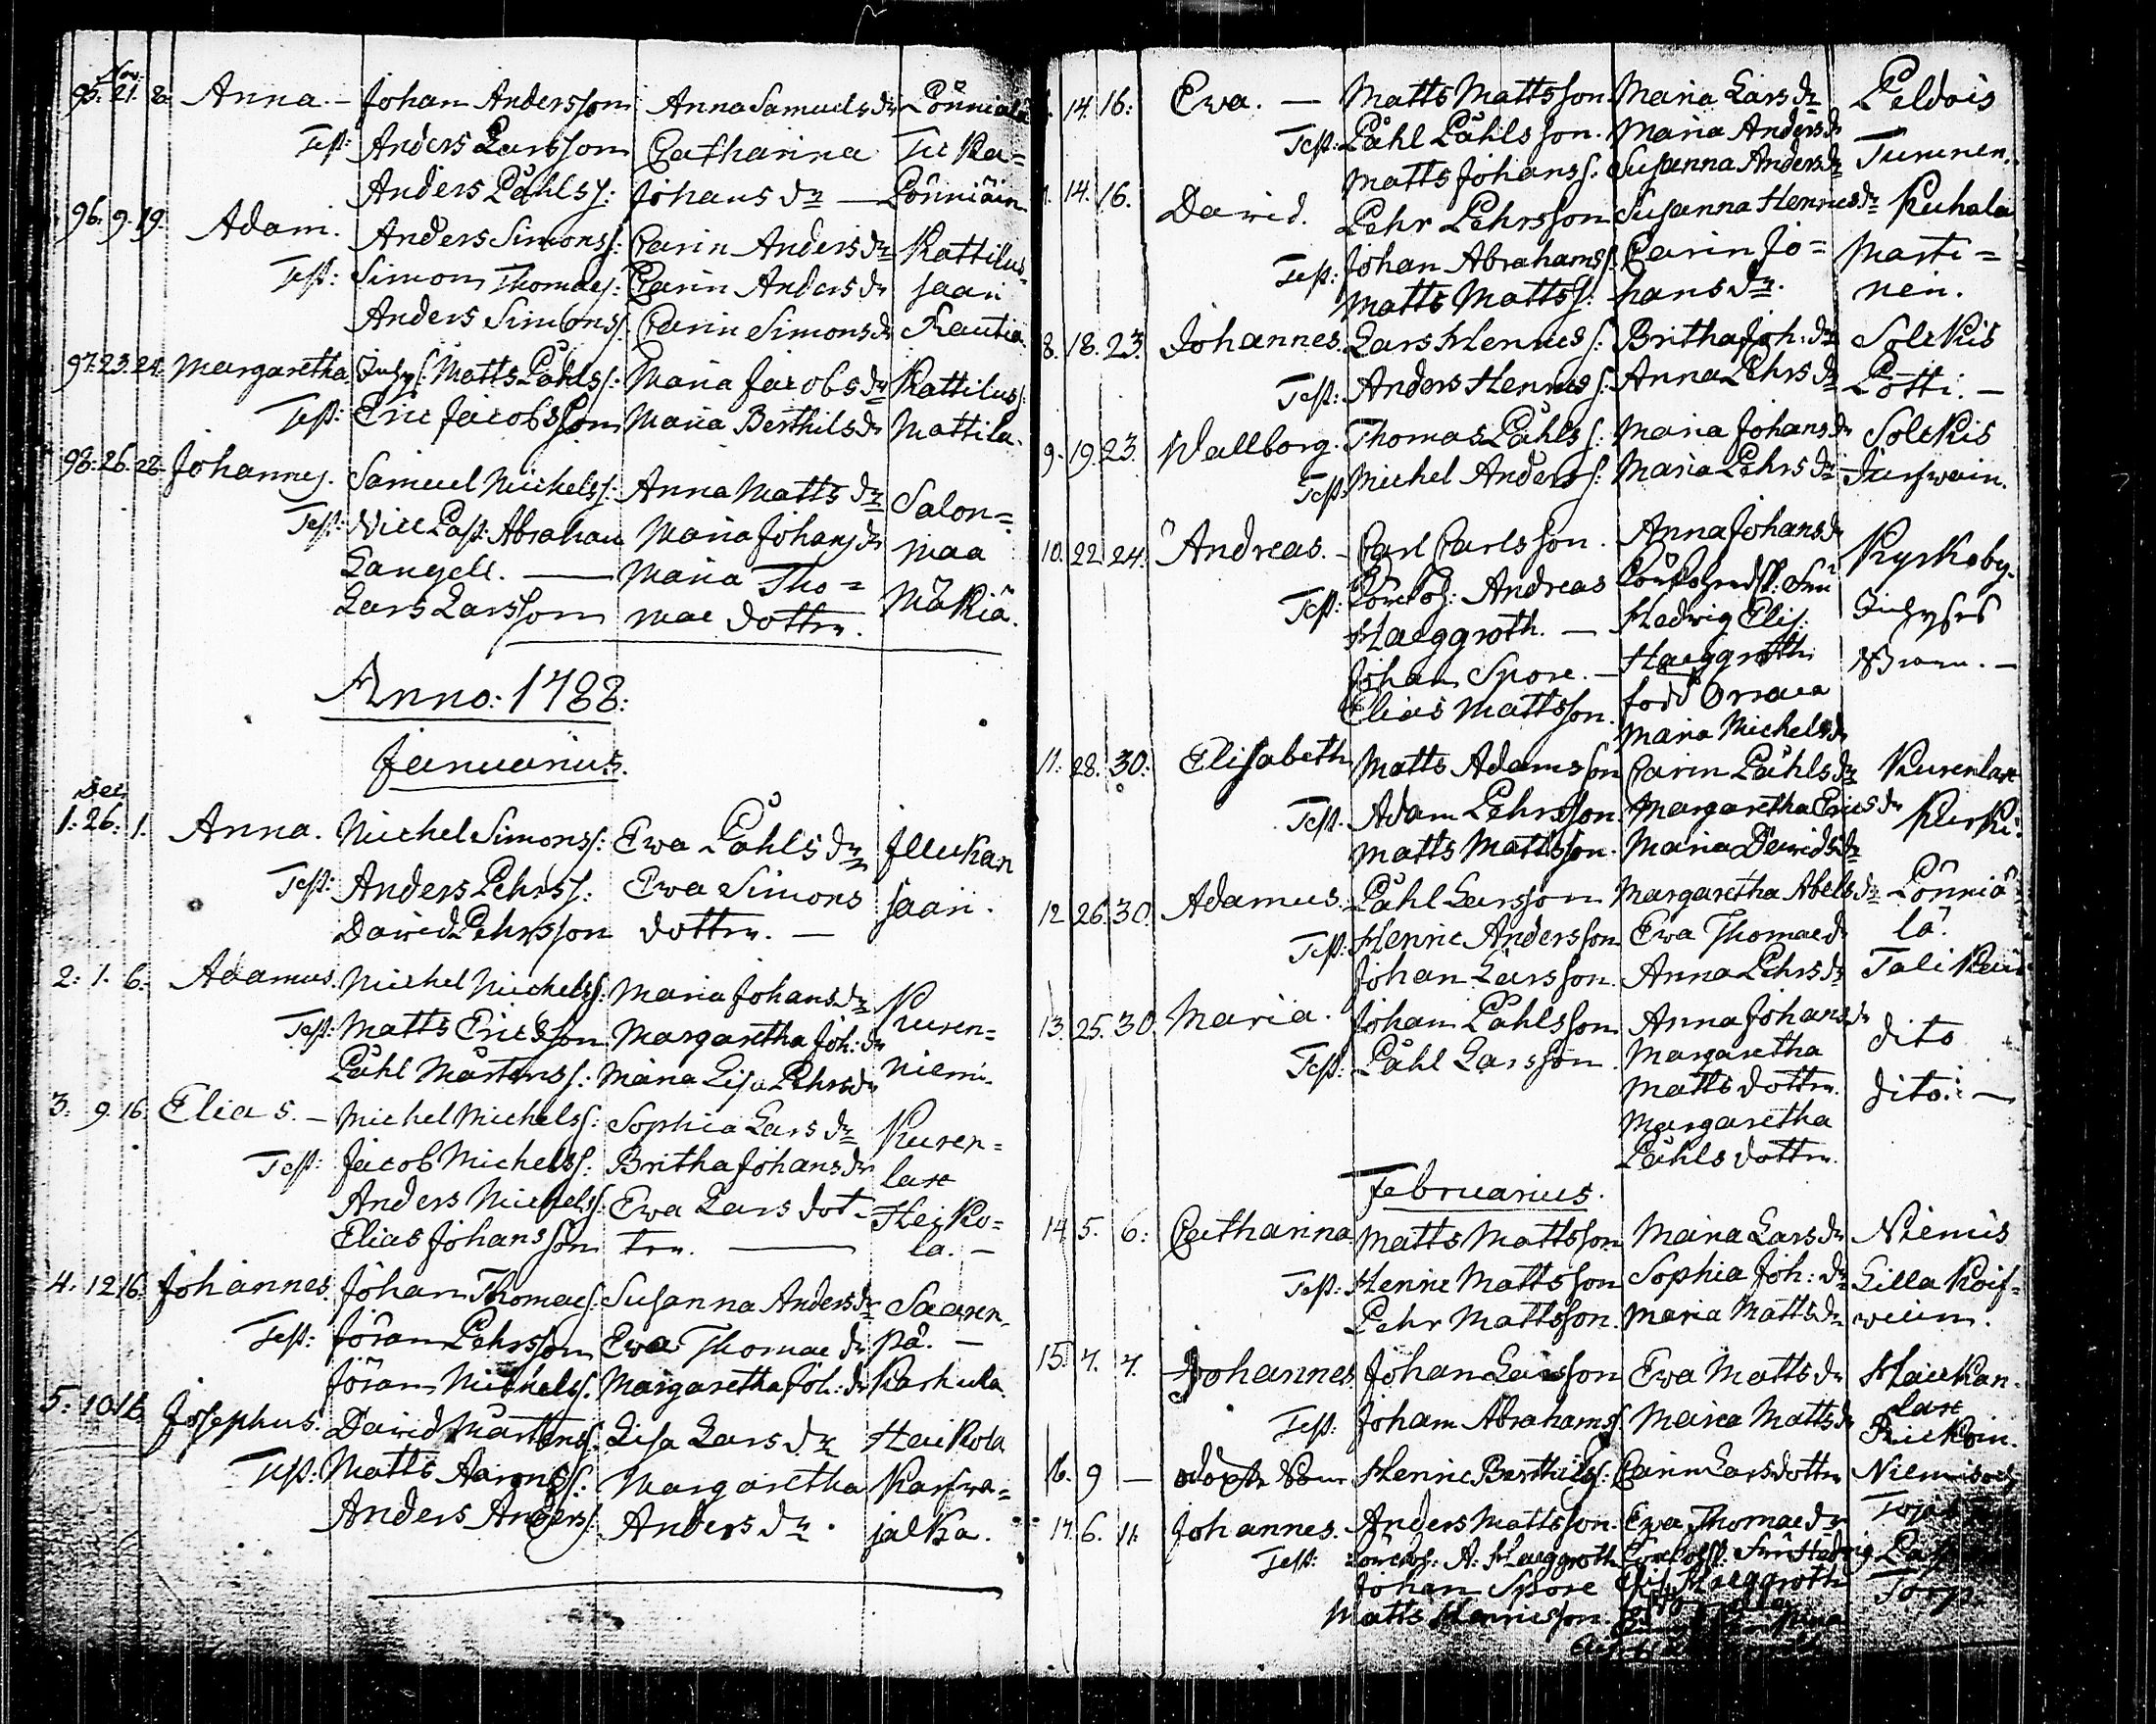 Nov:
95. 21. 8. Anna. – Johan Andersson Anna Samuels dr Lönniälä
Test: Anders Larsson Catharina Tu Ka=
Anders Påhls s: Johans dr — Lönniäin
96. 9. 19. Adam. Anders Simons s: Carin Anders dr Kattilus
Test: Simon Thomæ s: Carin Anders dr saari
Anders Simons s: Carin Simons dr Rautia
97. 23. 24. Margaretha Inhys: Matts Påhls s: Maria Jacobs dr Kattilus s:
Test: Eric Jacobsson Maria Berthils dr Mattila.
98. 26. 28. Johannes. Samuel Michels s: Anna Matts dr Salon=
Test: Vice Past: Abraham Maria Johans dr maa
Langell. — Maria Tho=
Lars Larsson mae dotter. Mäkiä.
Anno: 1788:
Januarius.
Dec
1: 26: 1. Anna. Michel Simons s: Ewa Påhls dr Jllukan
Test: Anders Pehrs s: Ewa Simons saari.
David Pehrsson dotter. —
2: 1. 6. Adamus. Michel Michels s: Maria Johans dr Kuren=
Test: Matts Ericsson Margaretha Joh: dr niemi.
Påhl Mårtens s: Maria Lisa Pehrs dr
3. 9. 16. Elias. – Michel Michels s: Sophia Lars dr Kuren=
Test: Jacob Michels s: Britha Johans dr lax
Anders Michels s: Ewa Lars dot= Heiko=
Elias Johansson ter. — la. –
4. 12. 16. Johannes. Johan Thomae s: Susanna Anders dr Saaren=
Test: Jöran Pehrsson Ewa Thomae dr pä. –
Jöran Michels s: Margaretha Joh: dr Karhula.
5. 10. 16. Josephus. David Mårtens s: Lisa Lars dr Heikola
Test: Matts Aarons s: Margaretha Karfwa=
Anders Anders s: Anders dr. jalka.
14. 16: Ewa. — Matts Mattsson Maria Lars dr Peldois
Test: Påhl Påhlsson. Maria Anders dr Tummen.
Matts Johans s: Susanna Anders dr
14. 16. David. Pehr Pehrsson Susanna Henrics dr Kuhala
Test: Johan Abrahams s: Carin Jo= Marti=
Matts Matts s: hans dr. nen.
8. 18. 23. Johannes. Lars Henrics s: Britha Joh: dr Solkis
Test: Anders Henrics s: Anna Pehrs dr Pötti. –
9. 19. 23. Wallborg. Thomas Påhls s: Maria Johans dr Solkis
Test: Michel Anders s: Maria Pehrs dr
10. 22. 24. Andreas. – Carl Carlsson. Anna Johans dr Kyrkoby.
Test: Andreas
Haeggroth. — Hedwig Elis: Inhyses
Johan Spore. – Haeggroth
Elias Mattsson. född Orraea
Maria Michels dr
11. 28. 30. Elisabeth Matts Adamsson Carin Påhls dr Kurenlax
Test. Adam Pehrsson. Margaretha Erics dr Kurki.
Matts Mattsson. Maria Davids dr
12. 26. 30. Adamus. Påhl Larsson Margaretha Abels dr Lönniä
Test: Henric Andersson Ewa Thomae dr lä.
Johan Larsson. Anna Pehrs dr Talikain
13. 25. 30. Maria. Johan Påhlsson Anna Johans dr dito
Test: Påhl Larsson. Margaretha
Matts dotter. dito: —
Margaretha
Påhls dotter.
Februarius.
14. 5. 6: Catharina Matts Mattsson Maria Lars dr Niemis
Test: Henric Mattsson Sophia Joh: dr Lilla Koif=
Pehr Mattsson. Maria Matts dr
15. 4. 7. Johannes. Johan Larsson Ewa Matts dr Haukan=
lax
Test: Johan Abrahams s: Maria Matts dr
16. 9 — Henric Berthils s: Carin Larsdotter
17. 6. 11. Johannes. Anders Mattsson. Ewa Thomae dr
Test: A: Haeggroth
Johan Spore Elis: Haeggroth Torp.
Matts Henricsson.